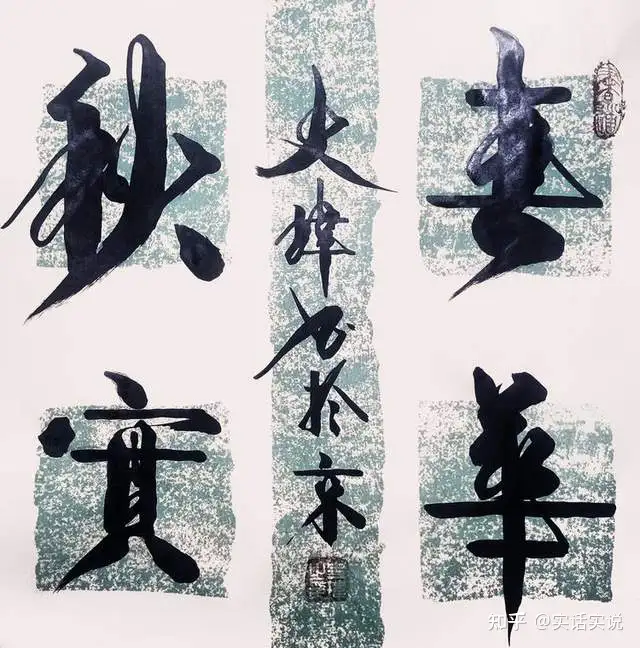 春華
秋實
史 书於京
知乎 @实话实说